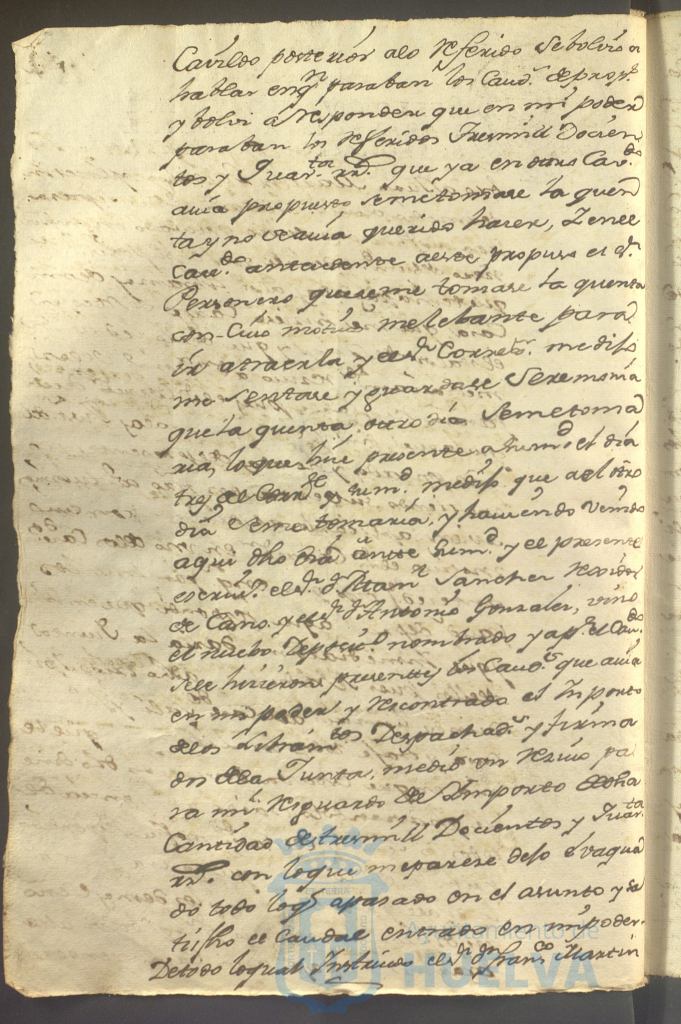 Cavildo posterior alo Referido Sebolvio a
hablar en qn paraban los Caud.s de prop.s
y bolvi a Responder que en mi poder
paraban los Referidos Tresmill Docien
tos y Quar.ta rr.s que ya en otros Cav.dos
avia propuesto Semetomase la quen
ta y no Seavia querido hacer, Zenel
Cav.do antecedente aeste propuso el S.r
Personero queseme tomase la quenta
con Cuio motivo melebante para
ir atraerla y el S.r Correx.r medijo
me Sentase y guardase Seremonia
que la quenta otro dia Semetoma
ria, lo que hice presente a Sum.d el dia
tres del Corr.te y Sum.d medijo que a el otro
dia Seme tomaria, y haviendo venido
aqui dho dia ante Sum.d y el presente
escriv.o el S.r d.n Man.l Sanchez Rexidor
de Cano y el S.r d.n Antonio Gonzalez, vino
el nuebo Deposit.o nombrado y ap.do el Cau.do
Sele hicieron presentes los Caud.s que avia
en mi poder y Recontrado el Inporto
delos Libram.tos Despachad.s y firma
dos dela Junta, medio un Recivo pa
ra mi Resguardo del Importe dedha
Cantidad destresmill Docientos y Quar.ta
rr.s con loque meparese dejo evaqua
do todo lo q.e apasado en el asunto y sa
tisfho el Caudal entrado en mi poder.
Detodo loqual Instruido el S.r d.n Fran.co Martin
Ayuntamiento de
HUELVA